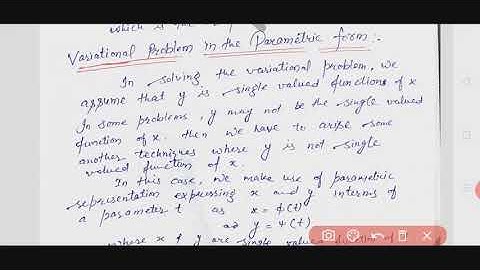 which is
Variational Problem in the Parametric form:-
In solving the variational problem, we
assume that y is single valued functions of x
In some problems, y may not be the single valued
function of x. then we have to arise some
another techniques where y is not single
valued function of x.
In this case, we make use of parametric
representation expressing x and y interms of
a parameter t as x = φ(t)
and y = ψ(t)
where x & y are single valued function of t